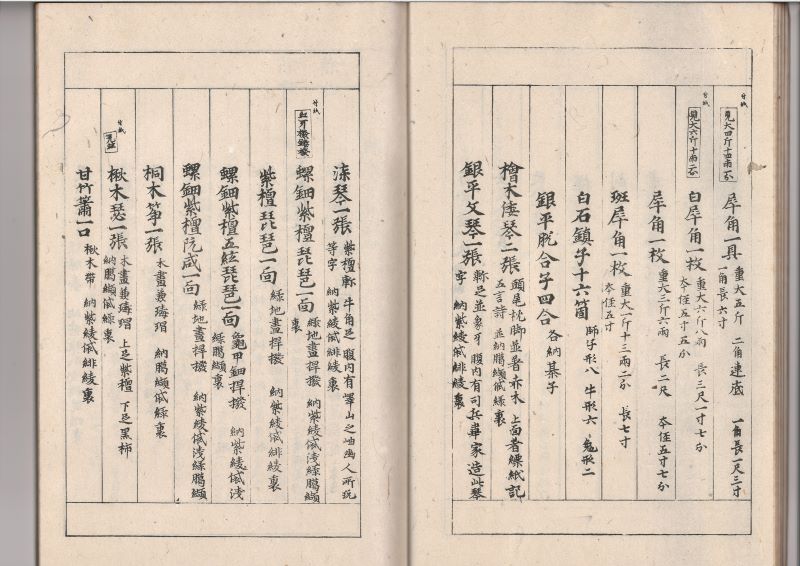 付紙
見大四斤十四両二分
犀角一具 重大五斤 二角連底 一角長一尺三寸
一角長六寸
付紙
見大六斤十両二分
白犀角一枚 重大六斤八両 長三尺一寸七分
本径五寸五分
犀角一枚 重大三斤六両 長二尺 本径五寸七分
斑犀角一枚 重大一斤十三両二分 長七寸
本径五寸
白石鎮子十六箇 師子形八 牛形六 兔形二
銀平脱合子四合 各納棊子
檜木倭琴二張 頭尾枕脚並著赤木 上面著縹紙記
五言詩 並納臈纈袋緑裏
銀平文琴一張 軫足並象牙 腹内有司兵韋家造此琴
字 納紫綾袋緋綾裏
漆琴一張 紫檀軫 牛角足 腹内有嶧山之岫幽人所玩
等字 納紫綾袋緋綾裏
付紙
螺鈿紫檀琵琶一面 緑地画捍撥 納紫綾袋浅緑臈纈
裏
紫檀琵琶一面 緑地画捍撥 納紫綾袋緋綾裏
螺鈿紫檀五絃琵琶一面 亀甲鈿捍撥 納紫綾袋浅
緑臈纈裏
螺鈿紫檀阮咸一面 緑地画捍撥 納紫綾袋浅緑臈纈
裏
桐木箏一張 木画並瑇瑁 納臈纈袋緑裏
付紙
楸木瑟一張 木画並瑇瑁 上足紫檀 下足黒柿
納臈纈袋緑裏
甘竹簫一口 楸木帯 納紫綾袋緋綾裏